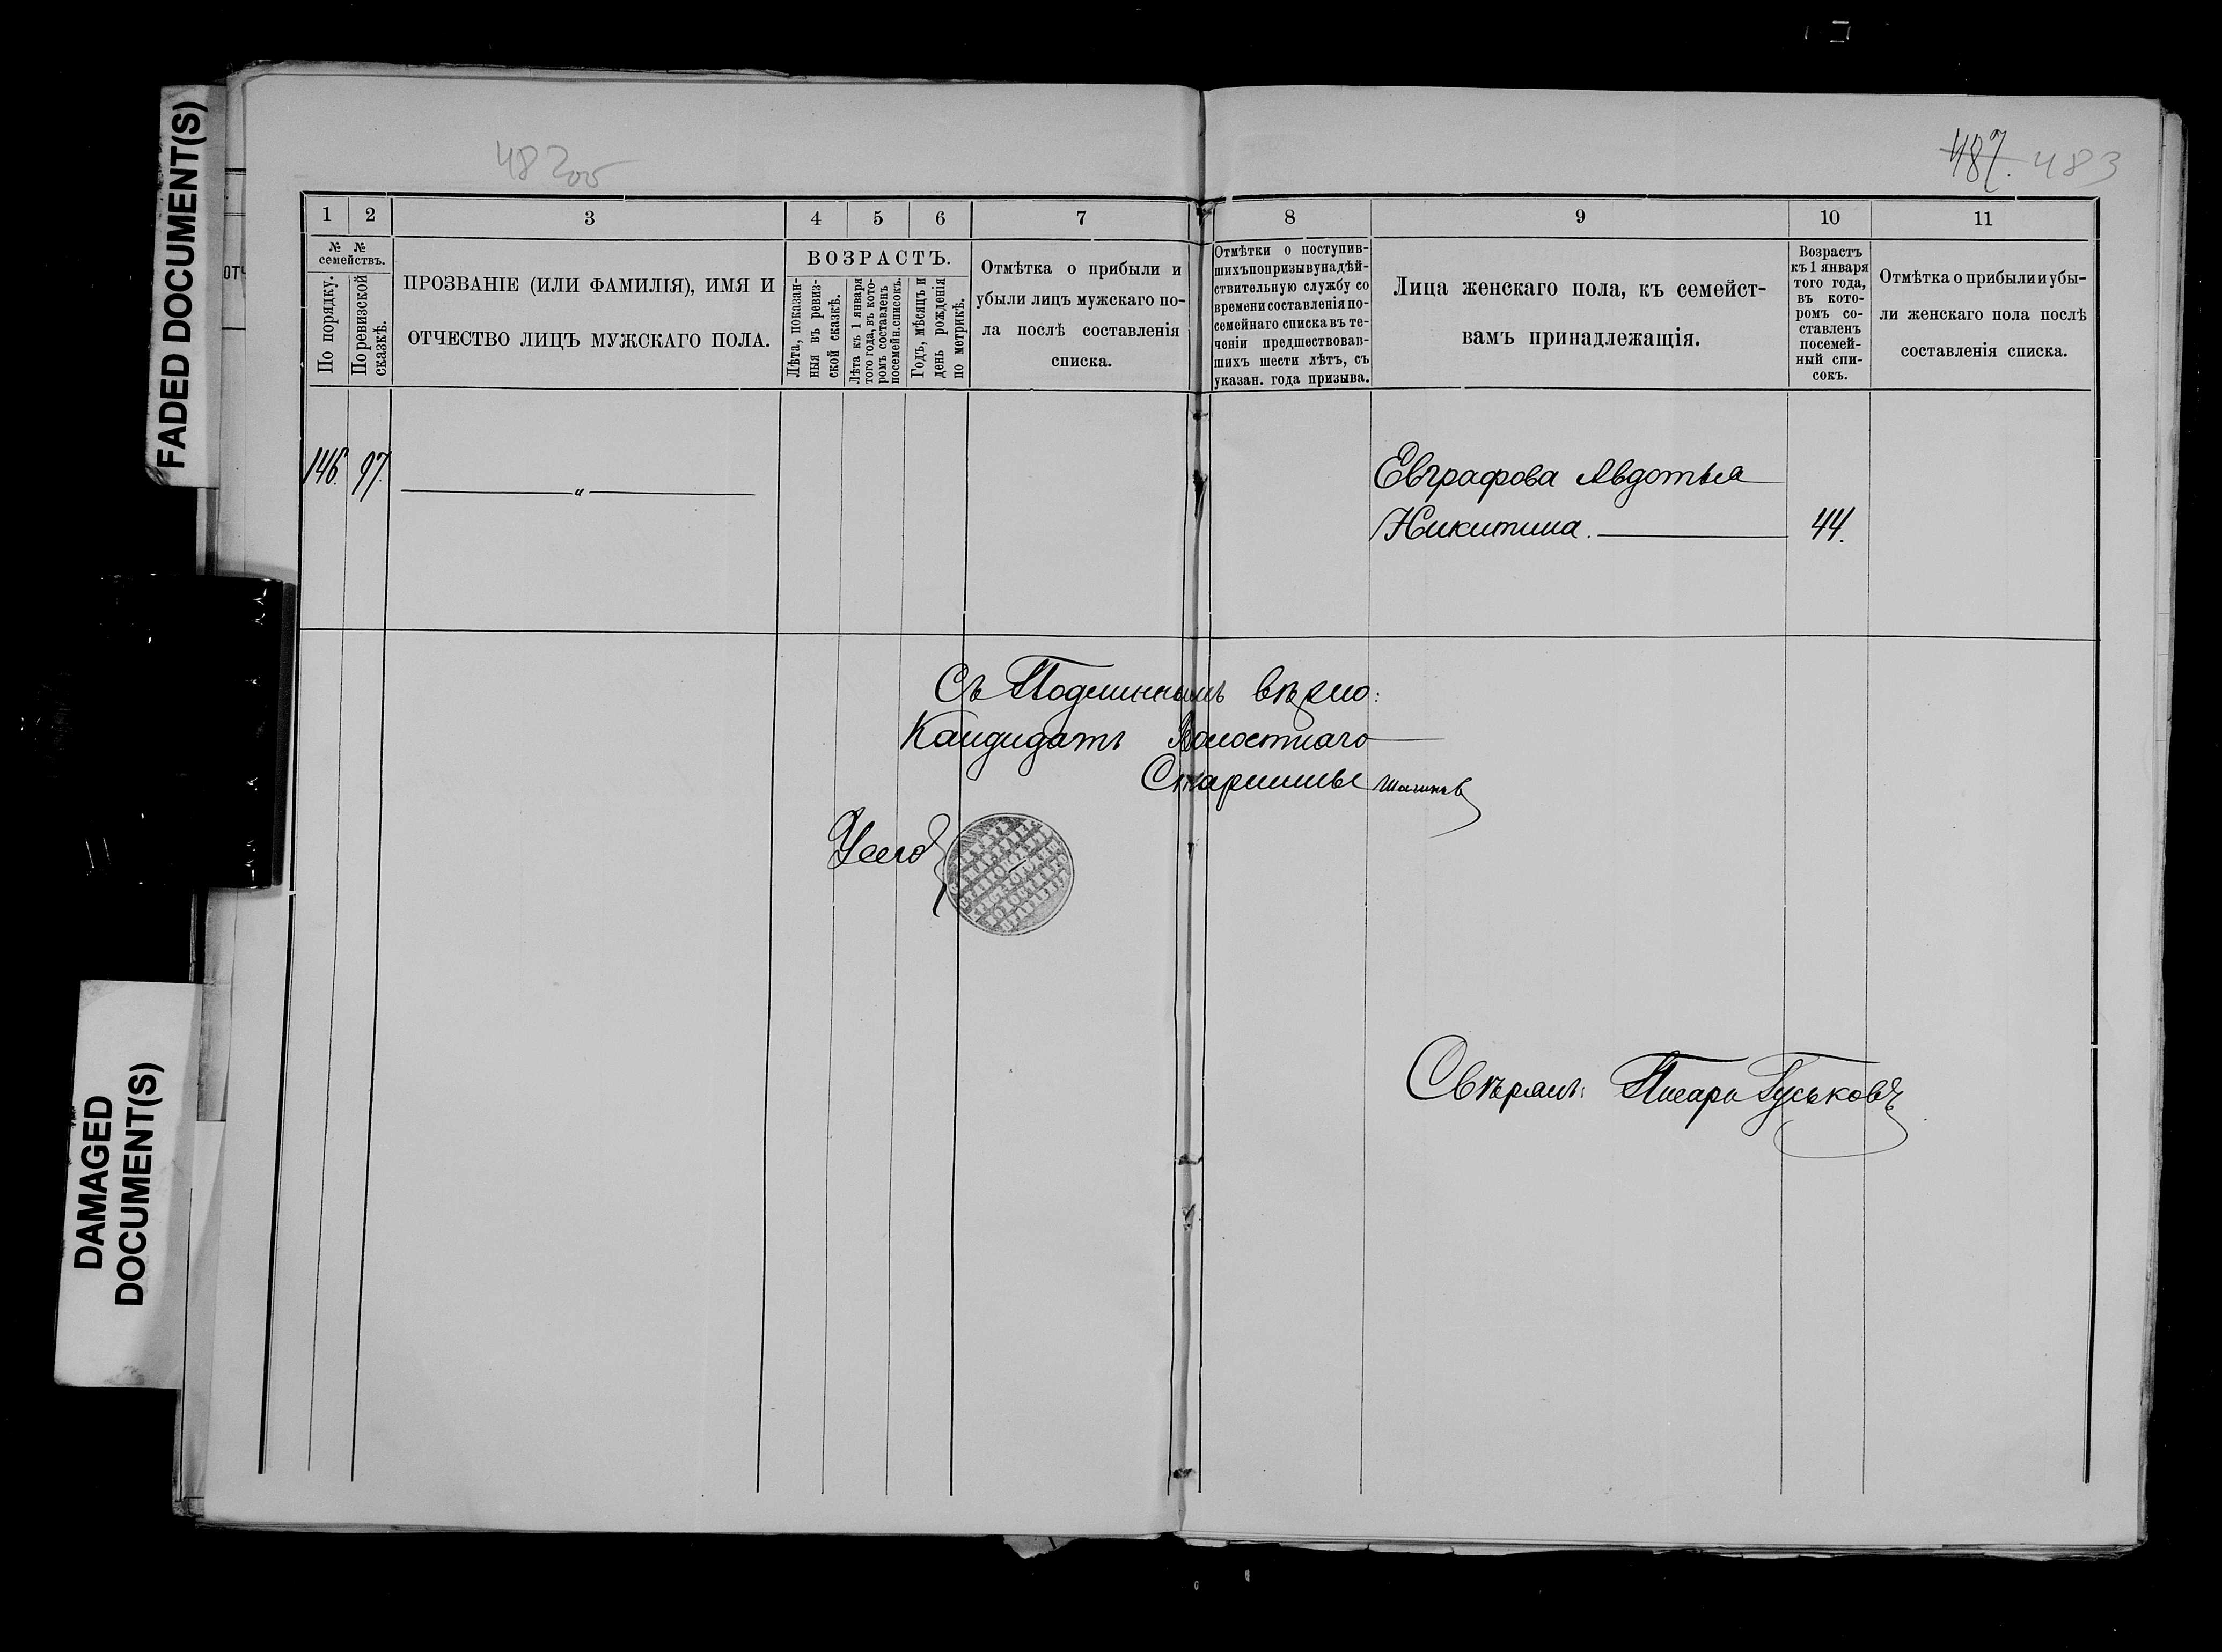 FADED DOCUMENT(S)
DAMAGED
DOCUMENT(S)
482 об
487. 483
1 2 3 4 5 6 7 8 9 10 11
№ № семействъ.
По порядку.
По ревизской
сказкѣ.
ПРОЗВАНІЕ (ИЛИ ФАМИЛІЯ), ИМЯ И
ОТЧЕСТВО ЛИЦЪ МУЖСКАГО ПОЛА.
ВОЗРАСТЪ.
Лѣта, показан-
ныя въ ревиз-
ской сказкѣ.
Лѣта къ 1 января
того года, въ кото-
ромъ составленъ
посемейн. списокъ.
Годъ, мѣсяцъ и
день рожденія
по метрикѣ.
Отмѣтка о прибыли и
убыли лицъ мужскаго по-
ла послѣ составленія
списка.
Отмѣтки о поступив-
шихъ по призыву на дѣй-
ствительную службу со
времени составленія по-
семейнаго списка въ те-
ченіи предшествовав-
шихъ шести лѣтъ, съ
указан. года призыва.
Лица женскаго пола, къ семейст-
вамъ принадлежащія.
Возрастъ
къ 1 января
того года,
въ кото-
ромъ со-
ставленъ
посемей-
ный спи-
сокъ.
Отмѣтка о прибыли и убы-
ли женскаго пола послѣ
составленія списка.
146. 97. — „ — Евграфова Авдотья
Никитина. — 44.
Съ Подлиннымъ вѣрно:
Кандидатъ Волостнаго
Старшины
Свѣрялъ: Писарь Гуськовъ